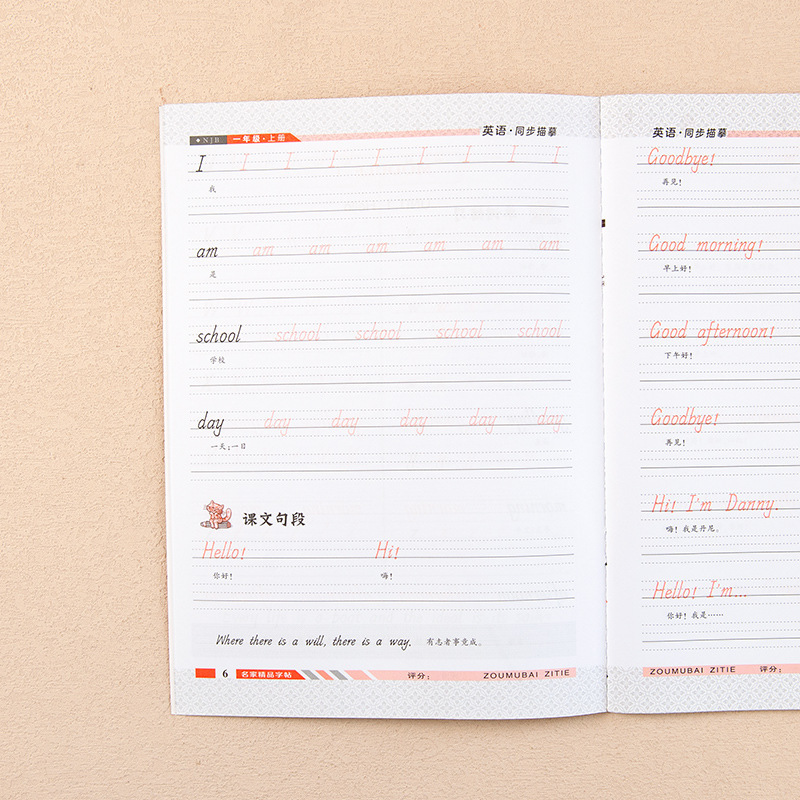 ◆NJB 一年级·上册 英语·同步描摹
I I I I I I I I I
我
am am am am am am am
是
school school school school school
学校
day day day day day day
一天;一日
课文句段
Hello! Hi!
你好! 嗨!
Where there is a will, there is a way. 有志者事竟成。
6 名家精品字帖 评分: ZOUMUBAI ZITIE
英语·同步描摹
Goodbye!
再见!
Good morning!
早上好!
Good afternoon!
下午好!
Goodbye!
再见!
Hi! I'm Danny.
嗨! 我是丹尼。
Hello! I'm...
你好! 我是……
ZOUMUBAI ZITIE 评分: